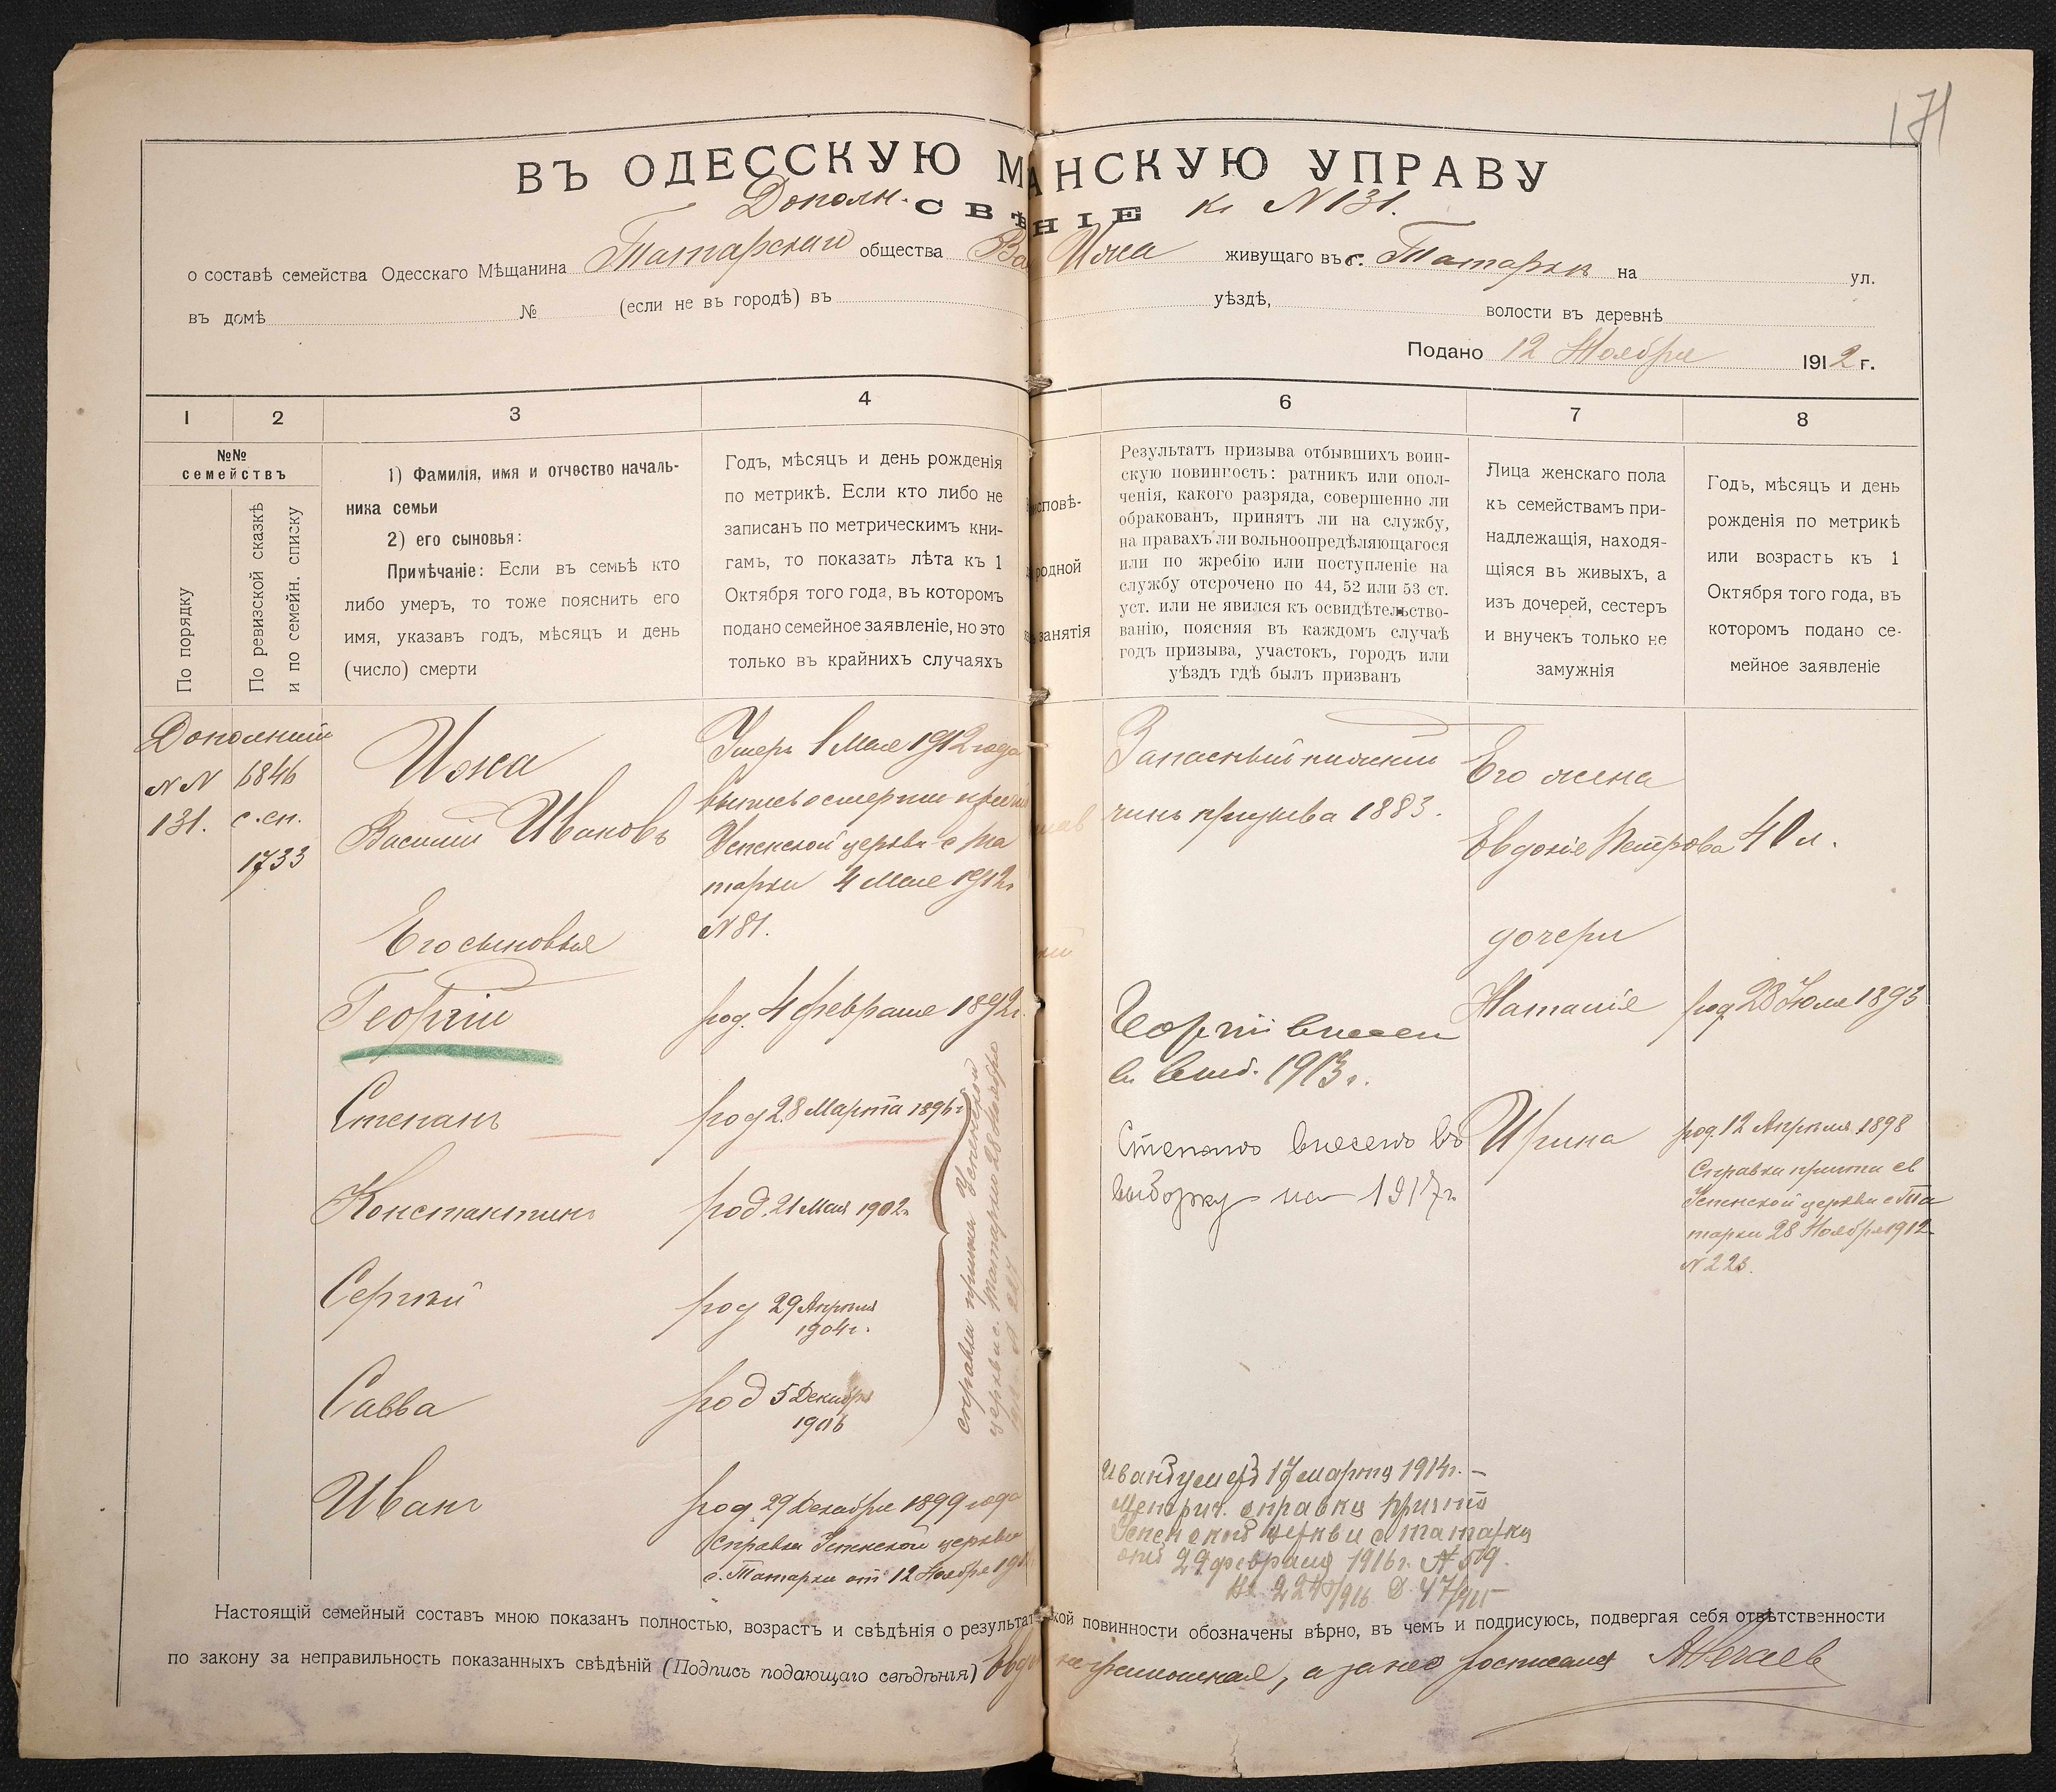 171
ВЪ ОДЕССКУЮ М АНСКУЮ УПРАВУ
Дополн. СВѢ НІЕ К N 131.
о составѣ семейства Одесскаго Мѣщанина Татарскаго общества Ва Ижа живущаго въ с. Татаркѣ на ул.
въ домѣ № (если не въ городѣ) въ уѣздѣ, волости въ деревнѣ
Подано 12 Ноября 1912 г.
1 2 3 4 6 7 8
№№
семействъ
По порядку
По ревизской сказкѣ
и по семейн. списку
1) Фамилія, имя и отчество началь-
ника семьи
2) его сыновья:
Примѣчаніе: Если въ семьѣ кто
либо умеръ, то тоже пояснить его
имя, указавъ годъ, мѣсяцъ и день
(число) смерти
Годъ, мѣсяцъ и день рожденія
по метрикѣ. Если кто либо не
записанъ по метрическимъ кни-
гамъ, то показать лѣта къ 1
Октября того года, въ которомъ
подано семейное заявленіе, но это
только въ крайнихъ случаяхъ
исповѣ-
родной
занятія
Результатъ призыва отбывшихъ воин-
скую повинность: ратникъ или опол-
ченія, какого разряда, совершенно ли
обракованъ, принятъ ли на службу,
на правахъ ли вольноопредѣляющагося
или по жребію или поступленіе на
службу отсрочено по 44, 52 или 53 ст.
уст. или не явился къ освидѣтельство-
ванію, поясняя въ каждомъ случаѣ
годъ призыва, участокъ, городъ или
уѣздъ гдѣ былъ призванъ
Лица женскаго пола
къ семействамъ при-
надлежащія, находя-
щіяся въ живыхъ, а
изъ дочерей, сестеръ
и внучекъ только не
замужнія
Годъ, мѣсяцъ и день
рожденія по метрикѣ
или возрастъ къ 1
Октября того года, въ
которомъ подано се-
мейное заявленіе
NN 6846
131. с. сп.
1733
Ижа
Василій Ивановъ
Умеръ 1 Мая 1912 года
Успенской церкви с Та
тарки 4 Мая 1912г
N 81.
Запасный нижній
чинъ призыва 1883.
Его жена
Евдокія Петрова 40 л.
Его сыновья
дочери
Георгій
род. 4 февраля 1892г.
Георгій внесен
в выб. 1913 г.
Наталія род 28 Юля 1893
Степанъ
род 28 Марта 1896 г
Степанъ внесенъ въ
выборку на 1917 г
Ирина род. 12 Апрѣля 1898
Справка причта св
Успенской церкви с Та
тарки 28 Ноября 1912
N 223.
Константинъ
род. 21 Мая 1902г
Сергѣй
род 29 Апрѣля
1904 г.
Савва
род 5 Декабря
1906
справка причта Успенской
церкви с. Татарки 28 Ноября
Иванъ
род. 29 Декабря 1899 года
Справка Успенской церкви
с. Татарки от 12 Ноября 191
Иванъ умеръ 17 марта 1914г. –
Метрич. справка причта
Успенской церкви с Татарки
отъ 29 февраля 1916 г. № 59.
Настоящій семейный составъ мною показанъ полностью, возрастъ и свѣдѣнія о результат кой повинности обозначены вѣрно, въ чемъ и подписуюсь, подвергая себя отвѣтственности
по закону за неправильность показанныхъ свѣдѣній (Подпись подающаго свѣдѣнья)